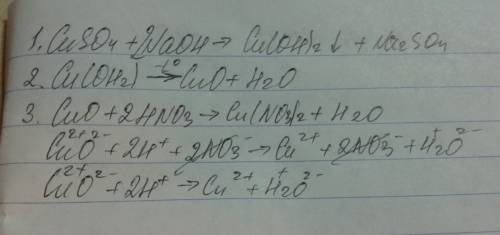 1. CuSO4 + 2NaOH → Cu(OH)2 ↓ + Na2SO4
2. Cu(OH2) –t°→ CuO + H2O
3. CuO + 2HNO3 → Cu(NO3)2 + H2O
Cu²⁺O²⁻ + 2H⁺ + 2NO3⁻ → Cu²⁺ + 2NO3⁻ + H⁺2O²⁻
Cu²⁺O²⁻ + 2H⁺ → Cu²⁺ + H⁺2O²⁻